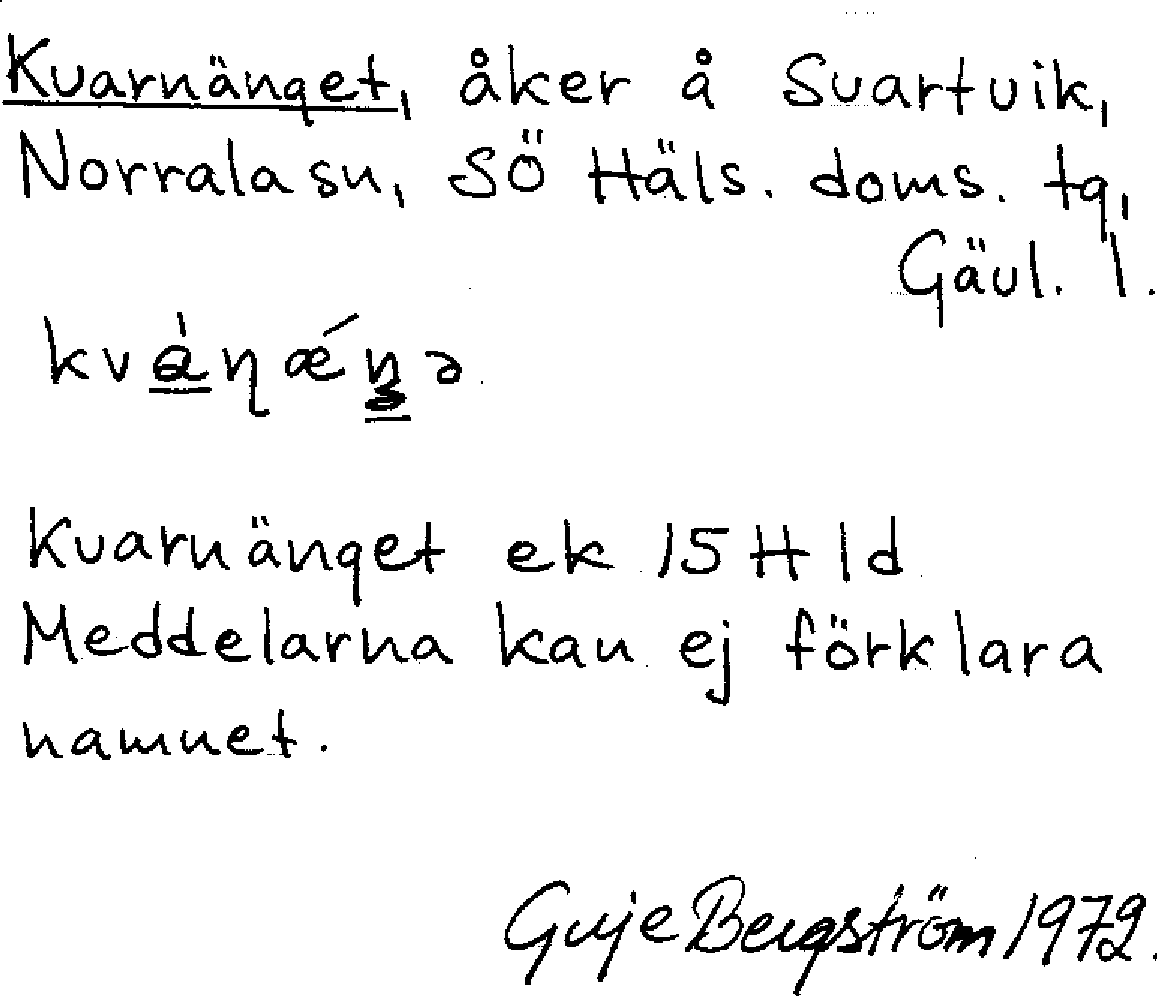 Kvarnänget, åker å Svartvik,
Norrala sn, SÖ Häls. doms. tg,
Gävl. l.
Kvarnänget ek 15H 1d
Meddelarna kan ej förklara
namnet.
Guje Bergström 1972.